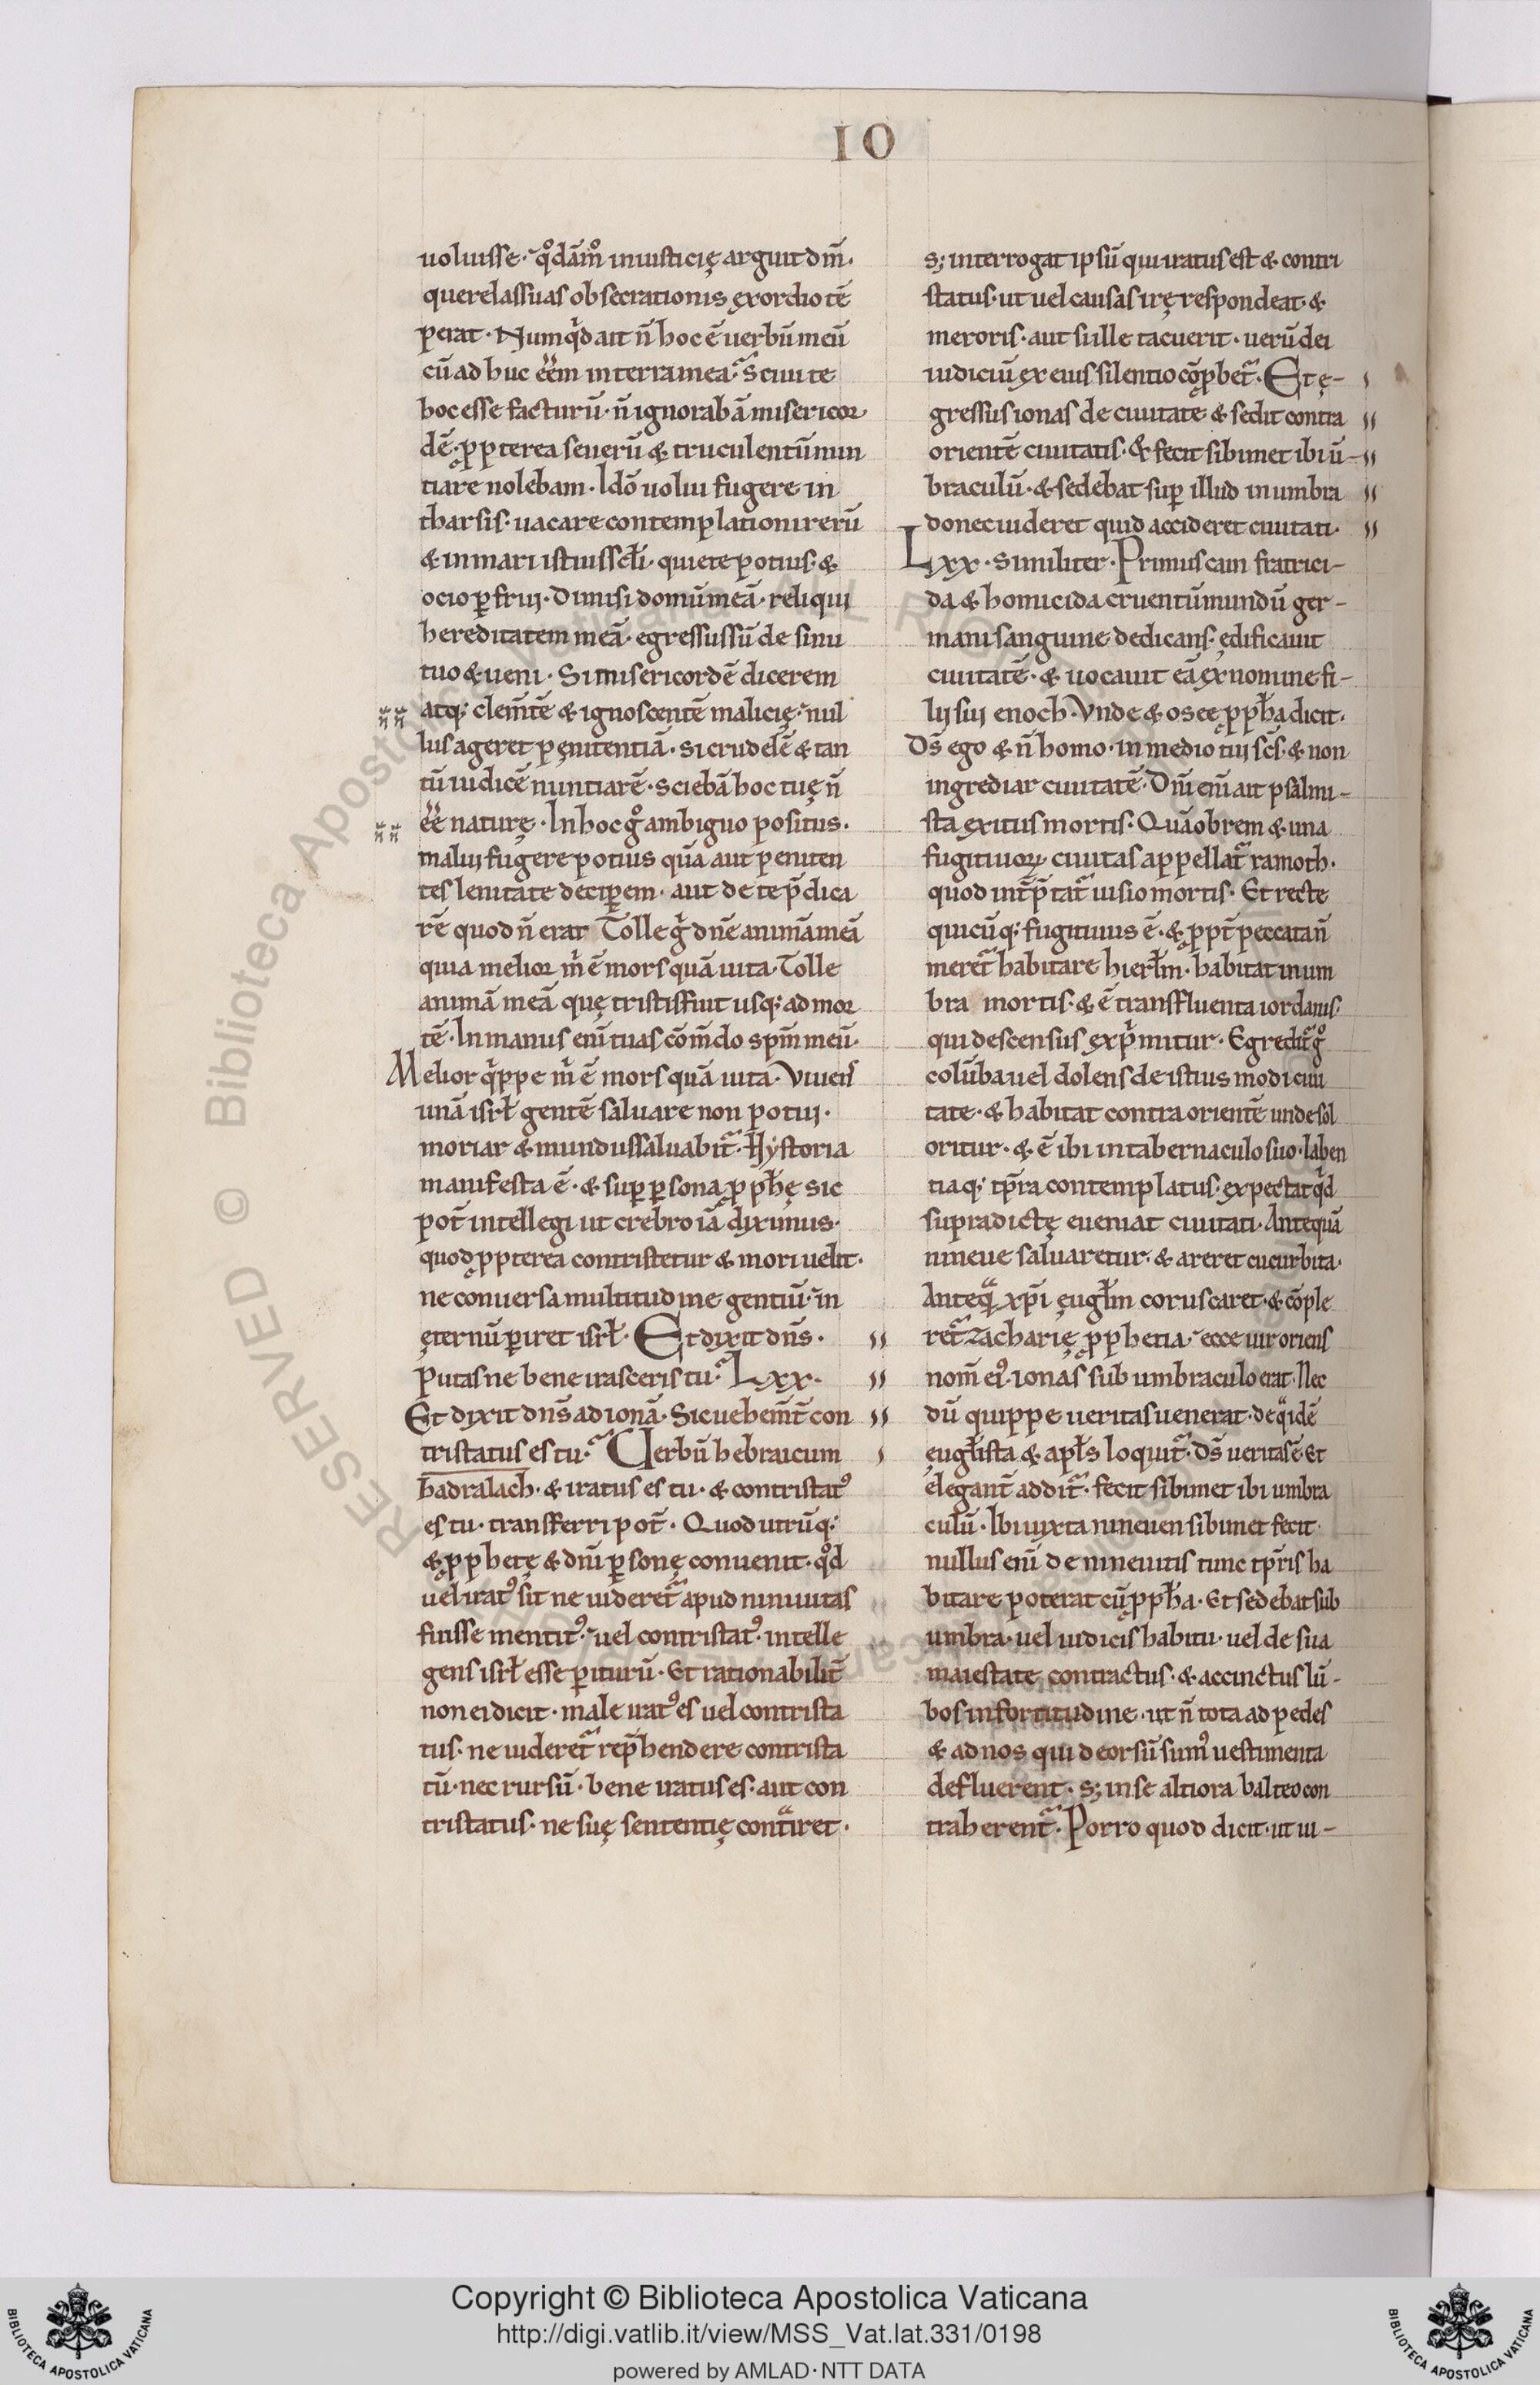 IO
uoluisse· q̊dāmo̊ iniusticię arguit dm̄·
querelas suas obsecrationis exordio tē
ꝑat· Nunqͥd ait n̄ hoc ē uerbū meū
cū adhuc eēm in terra mea? Sciui te
hoc esse facturū· n̄ ignorabā misericor
dē· ꝓpterea seuerū & truculentū nun
tiare nolebam· Idō uolui fugere in
tharsis· uacare contemplationi rerū
& in mari istius scl̄i· quiete potius· &
ocio ꝑfrui· Dimisi domū meā· reliqui
hereditatem meā· egressus sū de sinu
tuo & ueni· Si misericordē dicerem
atq; clem̄tē & ignoscentē malicię· nul
lus ageret pęnitentiā· si crudelē & tan
tū iudicē nuntiarē· sciebā hoc tuę n̄
eē naturę· In hoc gͦ ambiguo positus·
malui fugere potius quā aut peniten
tes lenitate deciꝑem· aut de te p̄dica
rē quod n̄ erat Tolle gͥ dn̄e animā meā
quia melior mͥ ē mors quā uita· Tolle
animā meā quę tristis fuit usq; ad mor
tē· In manus eni̅ tuas cōm̄do spm̄ meū·
Melior qͥppe mͥ ē mors quā uita· Viuens
unā isrł gentē saluare non potui·
moriar & mundus saluabit᷑· Hystoria
manifesta ē· & suꝑ ꝑsona ꝓphę sic
pot̄ intellegi ut crebro iā diximus·
quod ꝓpterea contristetur & mori uelit·
ne conuersa multitudine gentiū· in
ęternū ꝑiret isrł· Et dixit dn̄s·
Putas ne bene irasceris tu? Lxx·
Et dixit dn̄s ad ionā· Sic uehem̄t̄ con
tristatus es tu? Verbū hebraicum
hadralach· & iratus es tu· & contristatꝰ
es tu· transferri pot̄· Quod utrūq;
& ꝓphetę & dn̄i ꝑsonę conuenit· qͦd
uel iratꝰ sit ne uideret᷑ apud niniuitas
fuisse mentitꝰ· uel contristatꝰ· intelle
gens isrł esse ꝑiturū· Et rationabilit̄
non ei dicit· male iratꝰ es uel contrista
tus· ne uideret᷑ rep̄hendere contrista
tū· nec rursū· bene iratus es· aut con
tristatus· ne suę sententię contͣiret·
s; interrogat ipsū qui iratus est & contri
status· ut uel causas irę respondeat· &
meroris· aut si ille tacuerit· uerū dei
iudiciū ex eius silentio cōꝓbet᷑· Et ę-
gressus ionas de ciuitate & sedit contra
orientē ciuitatis· & fecit sibimet ibi ū-
braculū· & sedebat suꝑ illud in umbra
donec uideret quid accideret ciuitati·
Lxx· similiter· Primus cain fratrici-
da & homicida cruentū mundū ger-
mani sanguine dedicans· ędificauit
ciuitatē· & uocauit eā ex nomine fi-
lii sui enoch· Vnde & oseę ꝓph̄a dicit·
Ds̄ ego & n̄ homo· in medio tui scs̄· & non
ingrediar ciuitatē· Dn̄i eni̅ ait psalmi-
sta exitus mortis· Quāobrem & una
fugitiuoꝝ ciuitas appellat᷑ ramoth·
quod int̄p̄tat᷑ uisio mortis· Et recte
quicūq; fugitiuus ē· & ꝓpt̄ peccata n̄
meret᷑ habitare hierłm· habitat in um
bra mortis· & ē trans fluenta iordanis·
qui descensus expͥmitur· Egredit᷑ gͦ
colūba uel dolens de istius modi ciui
tate· & habitat contra orientē unde sol
oritur· & ē ibi in tabernaculo suo· laben
tiaq; tp̄ra contemplatus· expectat qͥd
supradictę eueniat ciuitati· Antequā
nineue saluaretur· & areret cucurbita·
Anteqͣ̄ xp̄i ęugłm coruscaret· & cōple
ret᷑ zacharię ꝓphetia· ecce uir oriens
nom̄ eiꝰ· ionas sub umbraculo erat· Nec
dū quippe ueritas uenerat· de qͣ idē
ęugłista & apłs loquit᷑· Ds̄ ueritas ē Et
elegant̄ addit᷑· fecit sibimet ibi umbra
culū· Ibi iuxta nineuen sibimet fecit·
nullus eni̅ de nineuitis tunc tp̄ris ha
bitare poterat cū ꝓph̄a· Et sedebat sub
umbra· uel iudicis habitu· uel de sua
maiestate contractus· & accinctus lū-
bos in fortitudine· ut n̄ tota ad pedes
& ad nos qui deorsū sumꝰ uestimenta
defluerent· s; in se altiora balteo con
traherent᷑· Porro quod dicit· ut ui-
Copyright © Biblioteca Apostolica Vaticana
http://digi.vatlib.it/view/MSS_Vat.lat.331/0198
powered by AMLAD·NTT DATA
BIBLIOTECA APOSTOLICA VATICANA
BIBLIOTECA APOSTOLICA VATICANA